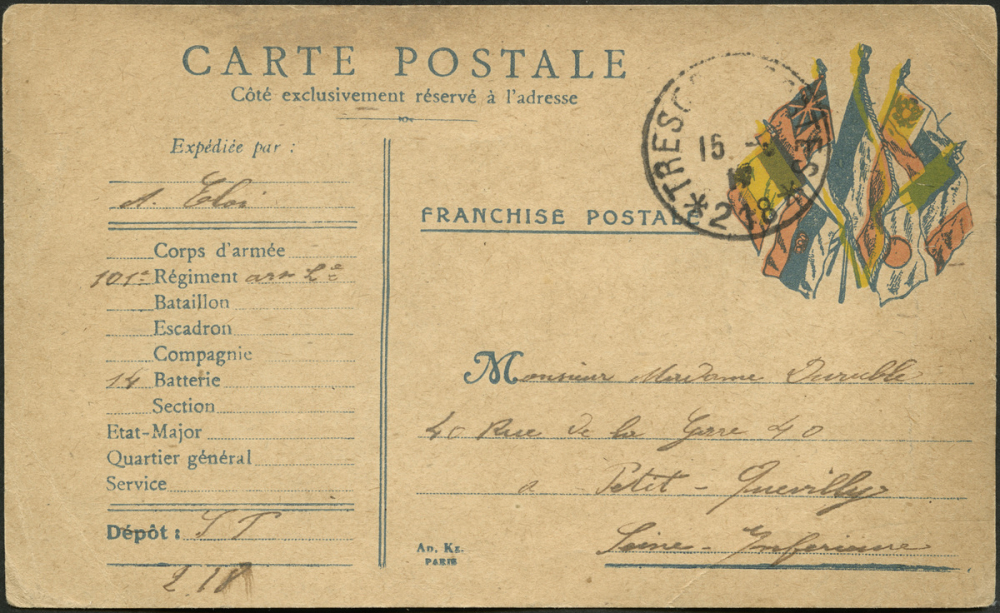 CARTE POSTALE
Côté exclusivement réservé à l'adresse
Expédiée par :
A. Eloi
Corps d'armée
101e Régiment
Bataillon
Escadron
Compagnie
14 Batterie
Section
Etat-Major
Quartier général
Service
Dépôt : S T
218
TRESOR POSTES
15
*218*
FRANCHISE POSTALE
Monsieur Madame
40 Rue de la Gare 40
a Petit-Quevilly
Seine-Inferieure
AD. KE.
PARIS